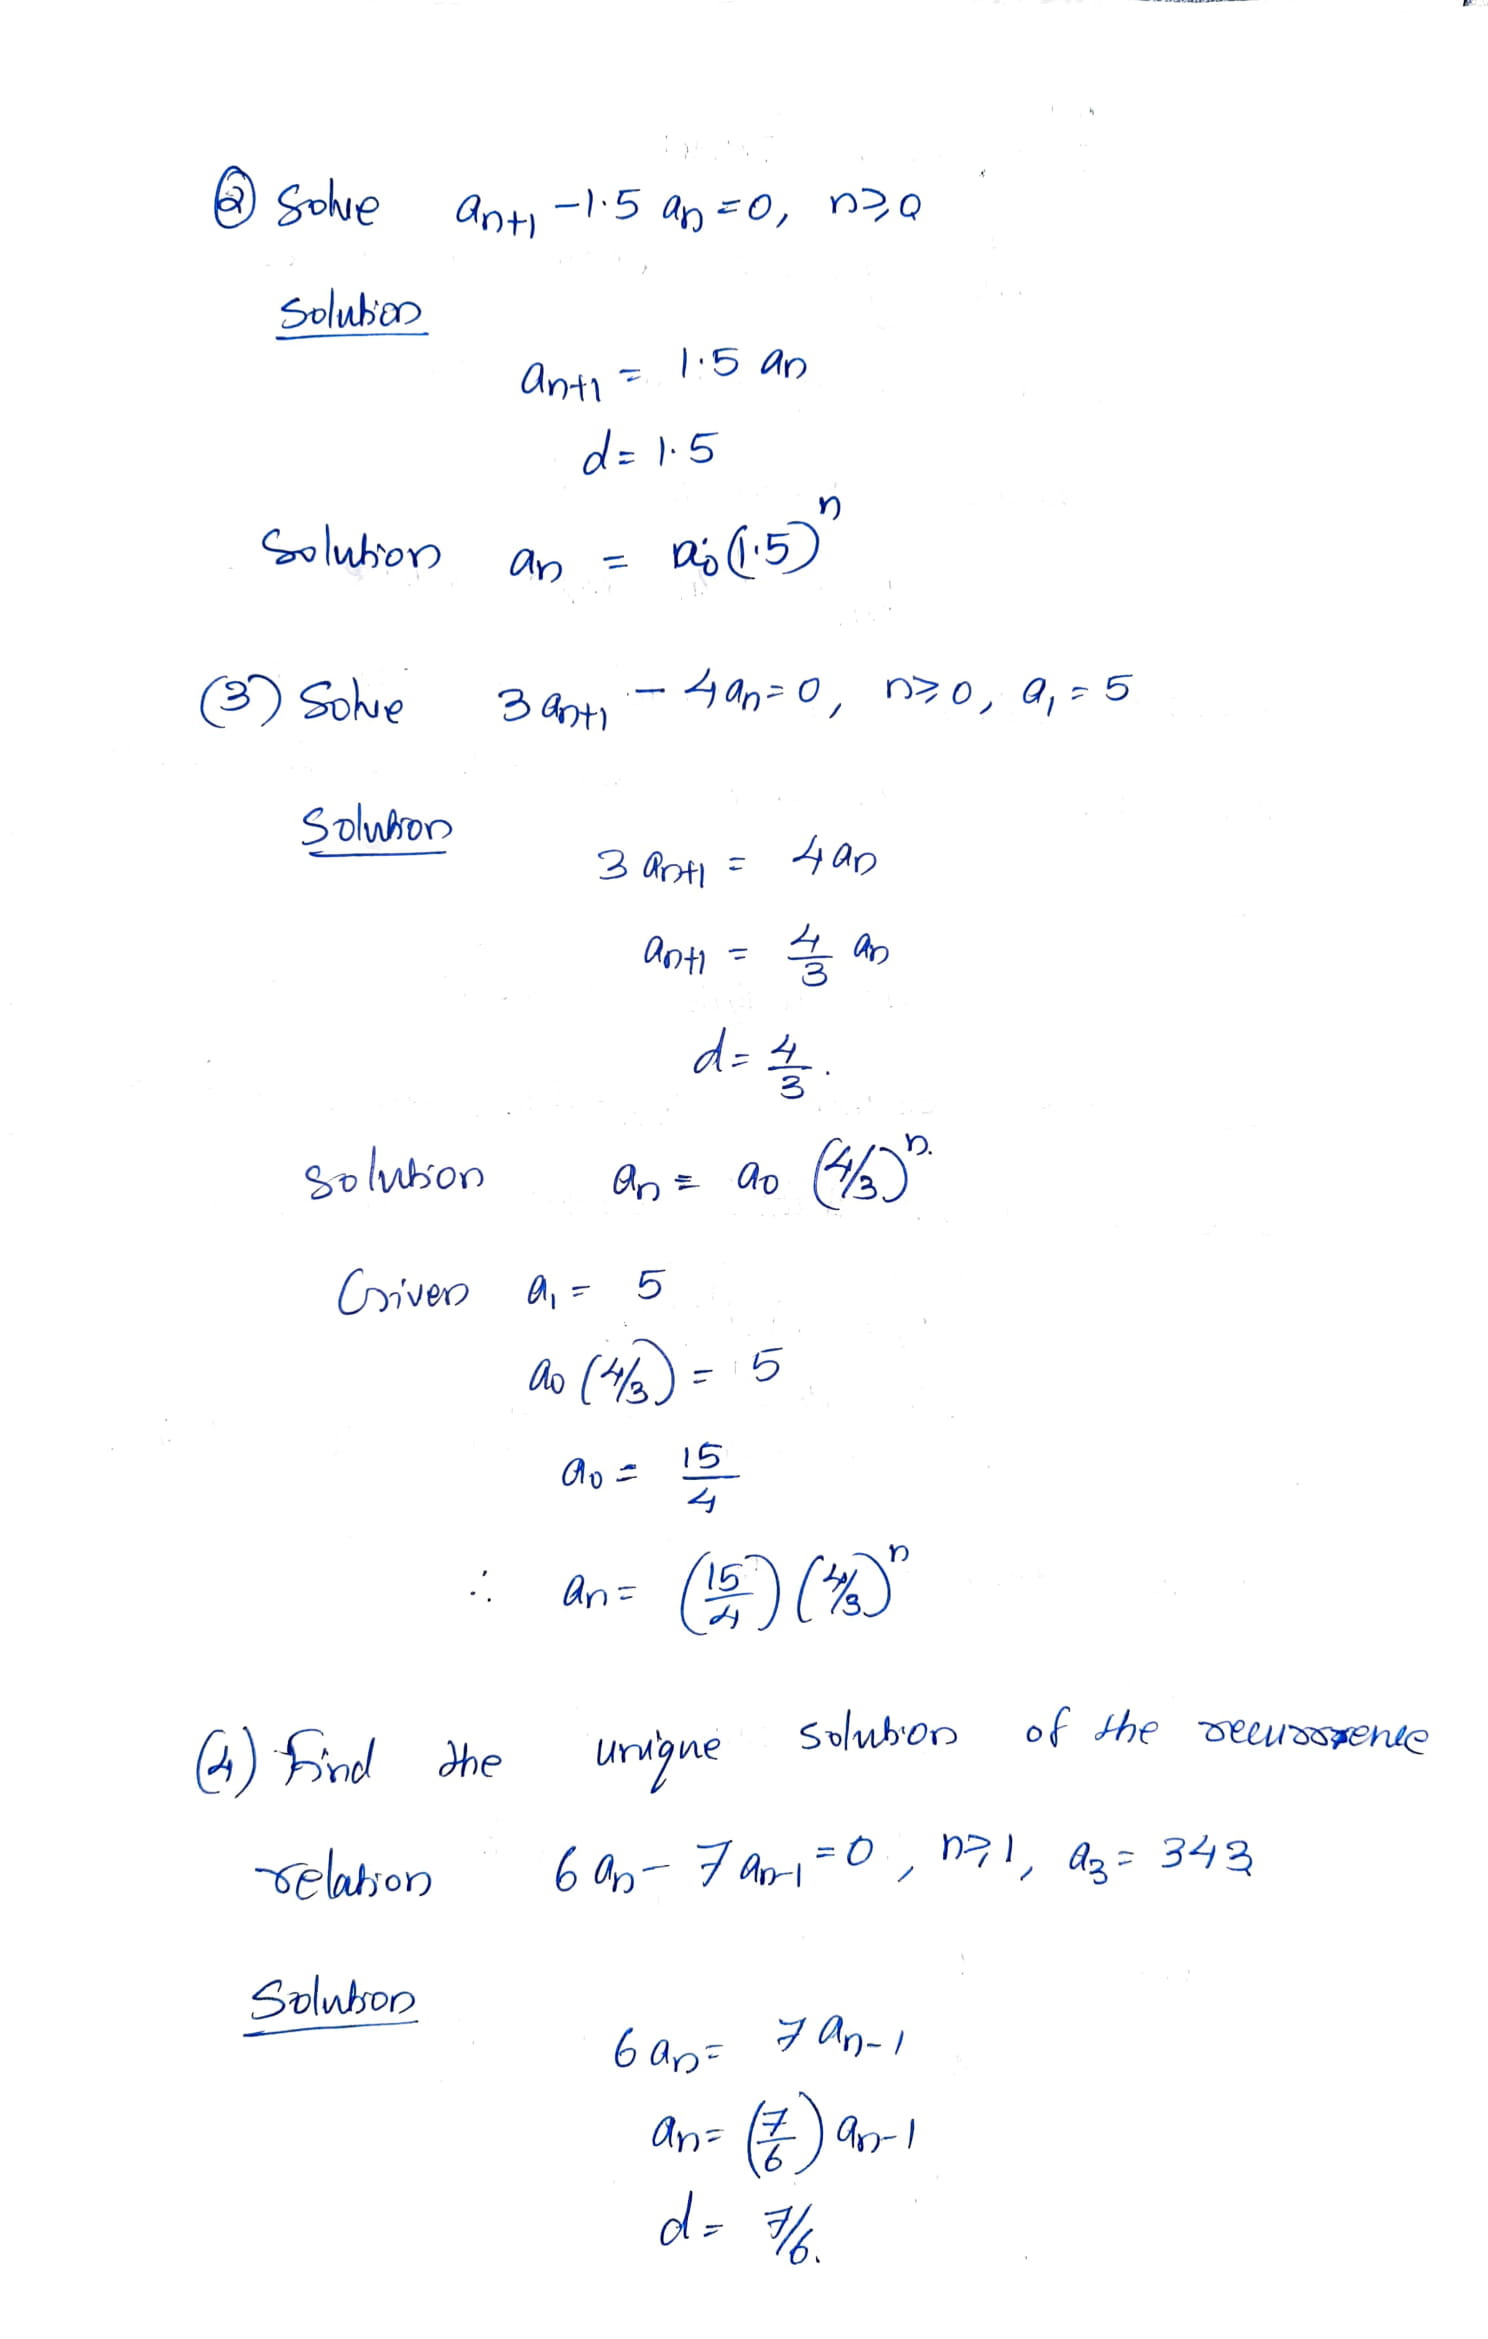 ② Solve aₙ₊₁ - 1.5 aₙ = 0, n ≥ 0
Solution
aₙ₊₁ = 1.5 aₙ
d = 1.5
Solution aₙ = a₀ (1.5)ⁿ
(3) Solve 3 aₙ₊₁ - 4 aₙ = 0, n ≥ 0, a₁ = 5
Solution
3 aₙ₊₁ = 4 aₙ
aₙ₊₁ = 4/3 aₙ
d = 4/3.
Solution aₙ = a₀ (4/3)ⁿ.
Given a₁ = 5
a₀ (4/3) = 5
a₀ = 15/4
∴ aₙ = (15/4) (4/3)ⁿ
(4) Find the unique solution of the recurrence
relation 6 aₙ - 7 aₙ₋₁ = 0, n ≥ 1, a₃ = 343
Solution
6 aₙ = 7 aₙ₋₁
aₙ = (7/6) aₙ₋₁
d = 7/6.